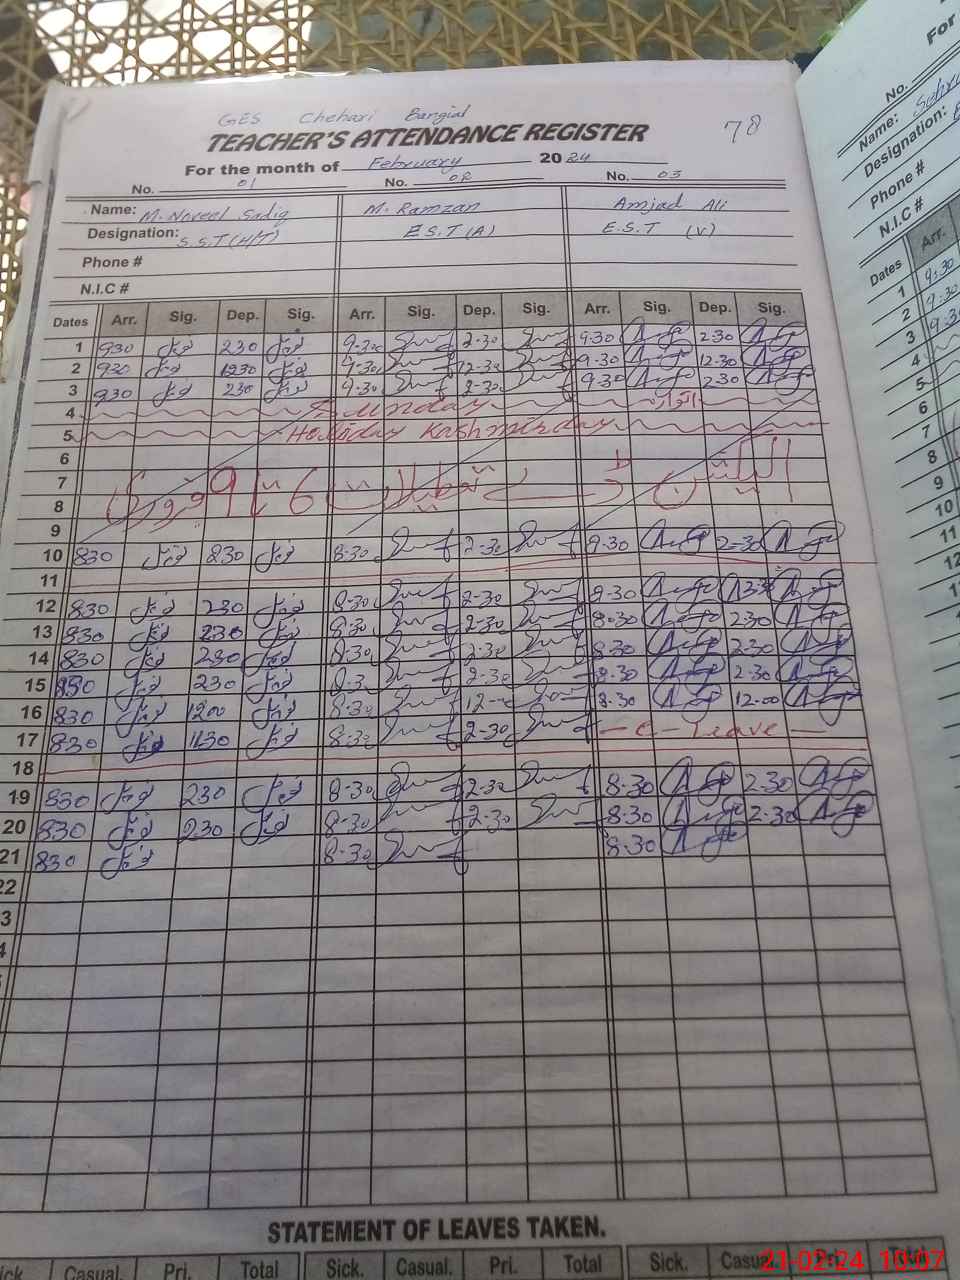 GES Chehari Bangial
TEACHER'S ATTENDANCE REGISTER
78
For the month of February 2024
No. 01 No. 02 No. 03
Name: M. Noreel Sadiq M. Ramzan Amjad Ali
Designation: S.S.T (H/T) E.S.T (A) E.S.T (V)
Phone #
N.I.C #
Dates Arr. Sig. Dep. Sig. Arr. Sig. Dep. Sig. Arr. Sig. Dep. Sig.
1 930 230 9-30 2-30 9-30 2-30
2 930 1230 9-30 12-30 9-30 12-30
3 930 230 9-30 2-30 9-30 2-30
4 Sunday اتوار
5 Holiday Kashmir day
6
7 الیکشن کی تعطیلات 6 تا 9 فروری
8
9
10 830 230 8-30 2-30 9-30 2-30
11
12 830 230 8-30 2-30 8-30
13 830 230 8-30 2-30 8-30 2-30
14 830 230 8-30 2-30 8-30 2-30
15 830 230 8-30 2-30 8-30 2-30
16 830 1200 8-30 12- 8-30 12-00
17 8-30 1130 8-30 2-30 - C - Leave -
18
19 830 230 8-30 2-30 8-30 2-30
20 830 230 8-30 2-30 8-30 2-30
21 830 8-30 8-30
22
3
4
STATEMENT OF LEAVES TAKEN.
Sick. Casual. Pri. Total Sick. Casual. Pri. Total Sick. Casual. Pri. Total
For
No.
Name:
Designation:
Phone #
N.I.C #
Dates Arr.
1 9:30
2 9-30
3 9-3
4
5
6
7
8
9
10
11
12
21-02-24 10:07